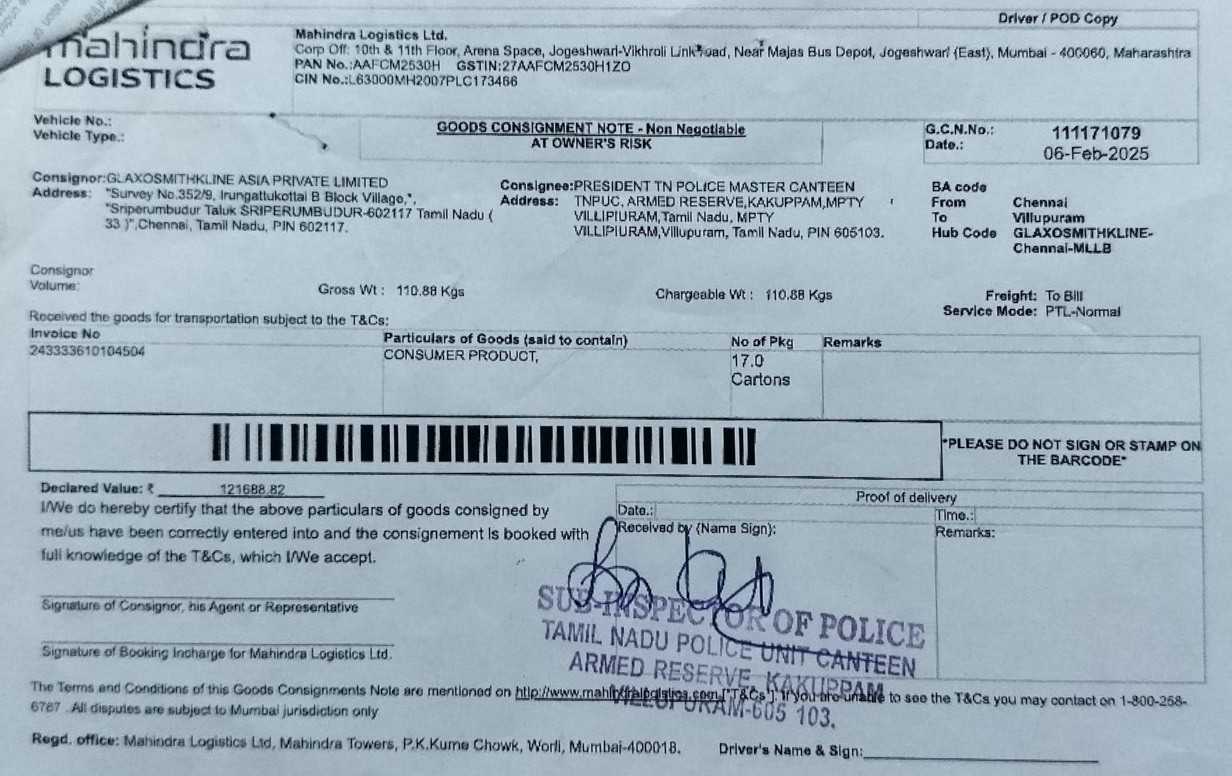 Driver / POD Copy
mahindra
LOGISTICS
Mahindra Logistics Ltd.
Corp Off: 10th & 11th Floor, Arena Space, Jogeshwari-Vikhroli Link Road, Near Majas Bus Depot, Jogeshwari (East), Mumbai - 400060, Maharashtra
PAN No.:AAFCM2530H GSTIN:27AAFCM2530H1ZO
CIN No.:L63000MH2007PLC173466
Vehicle No.:
Vehicle Type.:
GOODS CONSIGNMENT NOTE - Non Negotiable
AT OWNER'S RISK
G.C.N.No.: 111171079
Date.: 06-Feb-2025
Consignor:GLAXOSMITHKLINE ASIA PRIVATE LIMITED
Address: "Survey No.352/9, Irungattukottai B Block Village,",
"Sriperumbudur Taluk SRIPERUMBUDUR-602117 Tamil Nadu (
33 )",Chennai, Tamil Nadu, PIN 602117.
Consignee:PRESIDENT TN POLICE MASTER CANTEEN
Address: TNPUC, ARMED RESERVE,KAKUPPAM,MPTY
VILLIPIURAM,Tamil Nadu, MPTY
VILLIPIURAM,Villupuram, Tamil Nadu, PIN 605103.
BA code
From Chennai
To Villupuram
Hub Code GLAXOSMITHKLINE-
Chennai-MLLB
Consignor
Volume:
Gross Wt : 110.88 Kgs
Chargeable Wt : 110.88 Kgs
Freight: To Bill
Service Mode: PTL-Normal
Received the goods for transportation subject to the T&Cs:
Invoice No
243333610104504
Particulars of Goods (said to contain)
CONSUMER PRODUCT,
No of Pkg
17.0
Cartons
Remarks
*PLEASE DO NOT SIGN OR STAMP ON
THE BARCODE*
Declared Value: ₹ 121688.82
I/We do hereby certify that the above particulars of goods consigned by
me/us have been correctly entered into and the consignement is booked with
full knowledge of the T&Cs, which I/We accept.
Signature of Consignor, his Agent or Representative
Signature of Booking Incharge for Mahindra Logistics Ltd.
Proof of delivery
Date.:
Time.:
Received by (Name Sign):
Remarks:
SUB-INSPECTOR OF POLICE
TAMIL NADU POLICE UNIT CANTEEN
ARMED RESERVE, KAKUPPAM
VILLUPURAM-605 103.
The Terms and Conditions of this Goods Consignments Note are mentioned on http://www.mahindralogistics.com ["T&Cs"]. If you are unable to see the T&Cs you may contact on 1-800-258-
6787 . All disputes are subject to Mumbai jurisdiction only
Regd. office: Mahindra Logistics Ltd, Mahindra Towers, P.K.Kurne Chowk, Worli, Mumbai-400018.
Driver's Name & Sign: